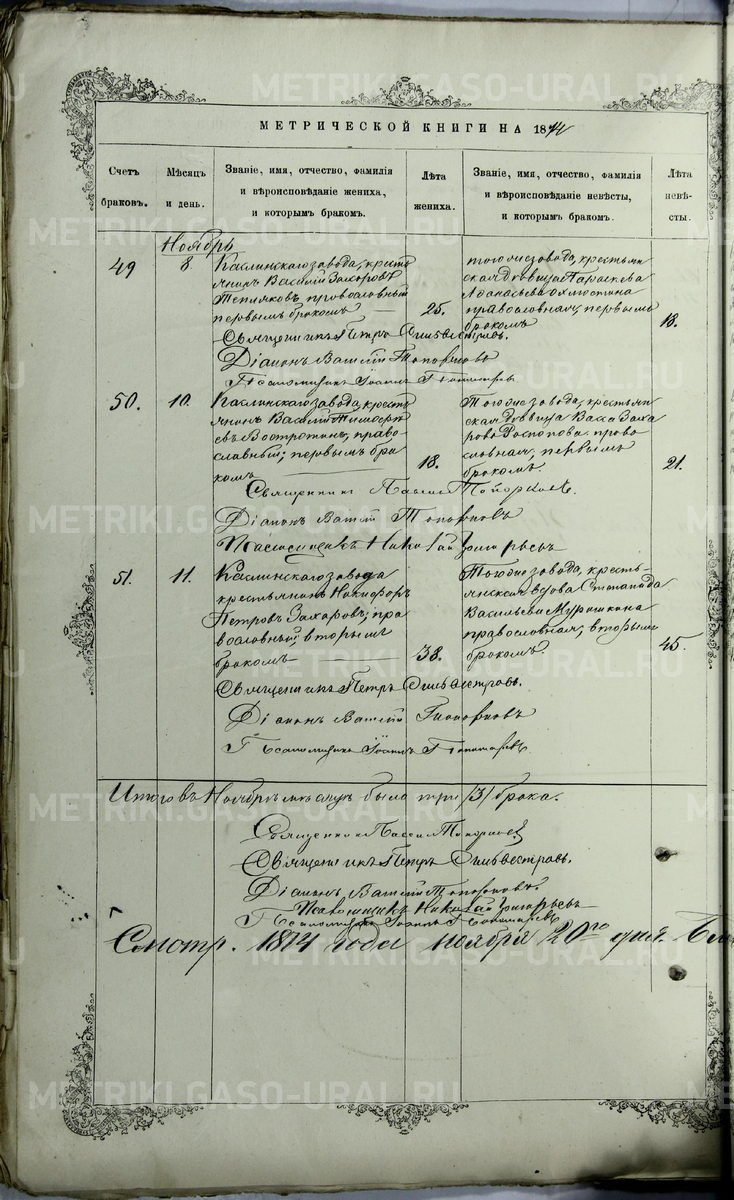 METRIKI.GASO-URAL.RU
МЕТРИЧЕСКОЙ КНИГИ НА 1874
Счетъ браковъ.
Мѣсяцъ и день.
Званіе, имя, отчество, фамилія
и вѣроисповѣданіе жениха,
и которымъ бракомъ.
Лѣта жениха.
Званіе, имя, отчество, фамилія
и вѣроисповѣданіе невѣсты,
и которымъ бракомъ.
Лѣта невѣ-
сты.
Ноябрь
49
8
Каслинскаго завода, кресть
янинъ Василій Захаровъ
Тепляковъ, православный
первымъ бракомъ
25.
тогоже завода, крестьян
ская дѣвица Параскева
Аѳанасьева
православная, первымъ
бракомъ
18.
Священникъ Петръ Сильвестровъ.
Діаконъ Василій Топорковъ
Псаломщикъ Іоаннъ Пономаревъ
50.
10.
Каслинскаго завода, кресть
янинъ Василій Тимоѳе
евъ Востротинъ, право-
славный; первымъ бра
комъ
18.
Тогоже завода, крестьян
ская дѣвица Васса Заха
рова Роспопова право
славная, первымъ
бракомъ.
21.
Священникъ Павелъ Топорковъ.
Діаконъ Василій Топорковъ
Псаломщикъ Николай Григорьевъ
51.
11.
Каслинскаго завода
крестьянинъ Никифоръ
Петровъ Захаровъ; пра
вославный; вторымъ
бракомъ
38.
Тогоже завода, кресть-
янская вдова Степанида
Васильева Мурашкина
православная, вторымъ
бракомъ.
45.
Священникъ Петръ Сильвестровъ.
Діаконъ Василій Топорковъ
Псаломщикъ Іоаннъ Пономаревъ
Итого въ Ноябрѣ мѣсяцѣ было три /3/ брака.
Священникъ Павелъ Топорковъ
Священникъ Петръ Сильвестровъ.
Діаконъ Василій Топорковъ.
Псаломщикъ Николай Григорьевъ
Псаломщикъ Іоаннъ Пономаревъ
Смотр. 1874 года ноября 20го дня.